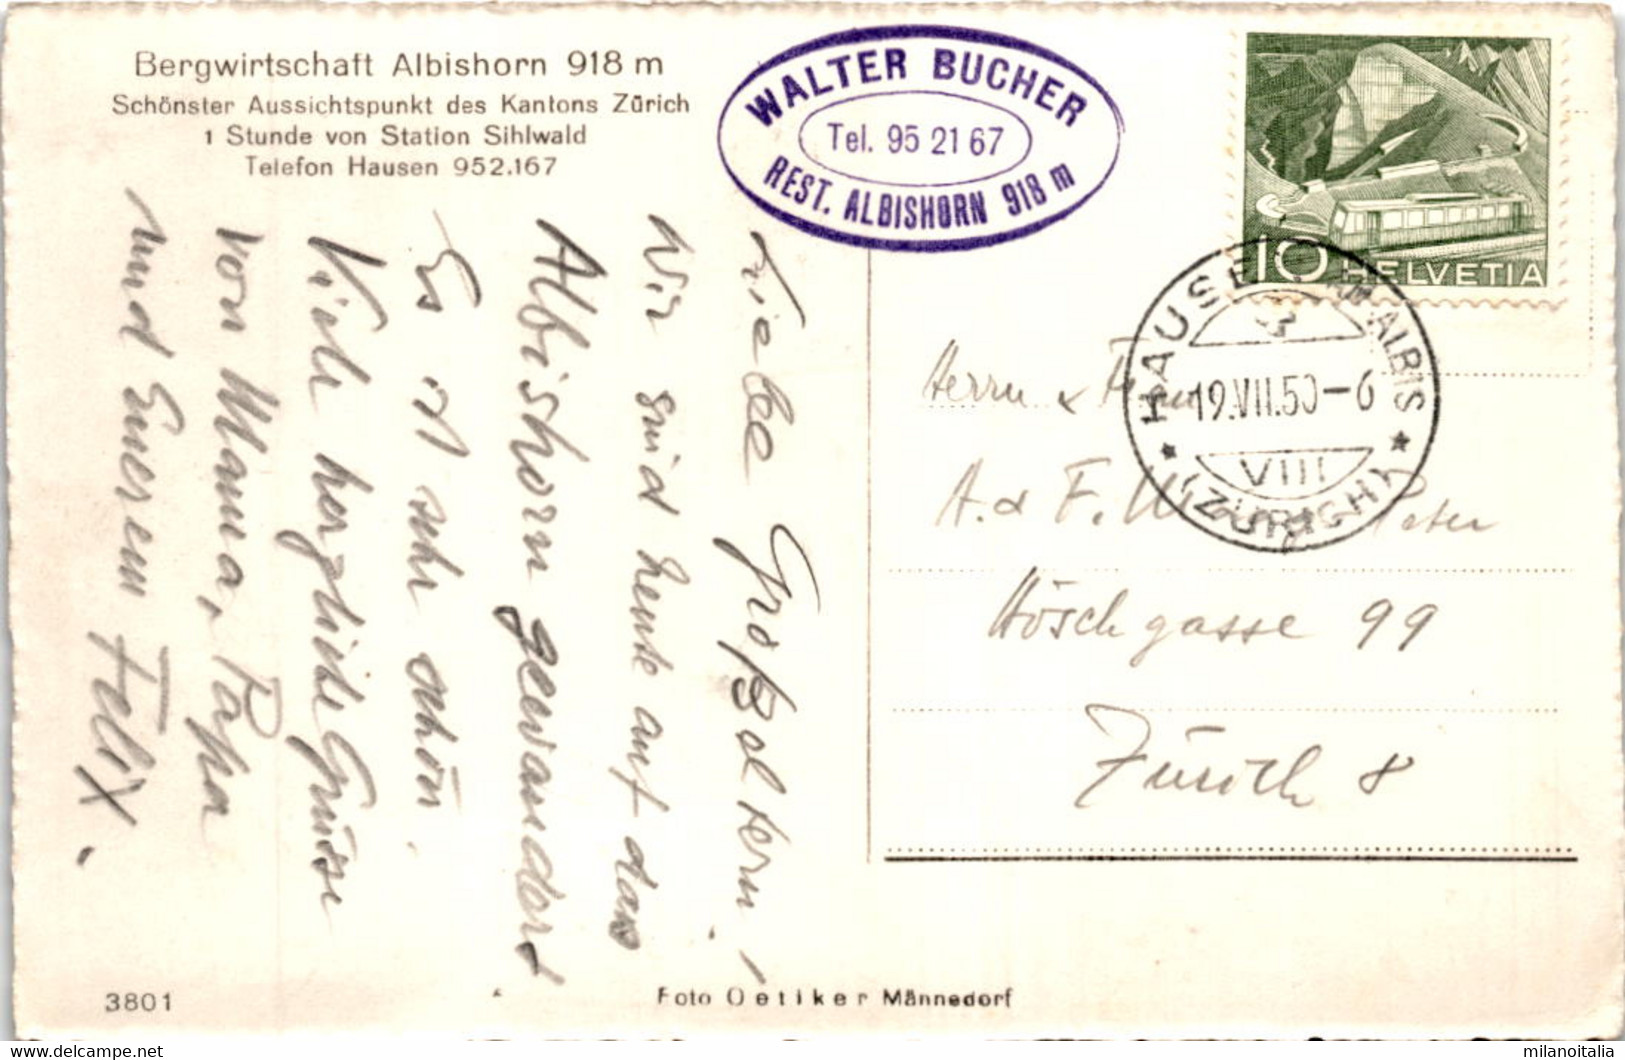 Bergwirtschaft Albishorn 918 m
Schönster Aussichtspunkt des Kantons Zürich
1 Stunde von Station Sihlwald
Telefon Hausen 952.167
WALTER BUCHER
Tel. 95 21 67
REST. ALBISHORN 918 m
10 HELVETIA
HAUSEN ALBIS
19.VII.50-6
VIII
(ZÜRICH)
Liebe Großeltern!
Wir sind heute auf das
Albishorn gewandert
Es ist sehr schön.
Viele herzliche Grüsse
von Mama, Papa
und Euerem Felix.
Herrn & Frau
A. & F. Peter
Höschgasse 99
Zürich 8
3801
Foto Oetiker Männedorf
milanoitalia